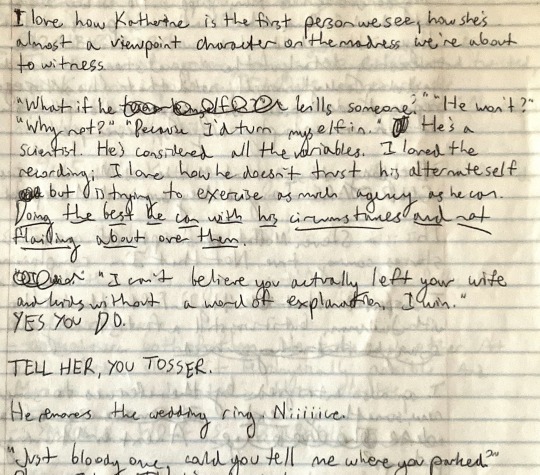 I love how Katherine is the first person we see, how she's
almost a viewpoint character on the madness we're about
to witness.
"What if he kills someone?" "He won't?"
"Why not?" "Because I'd turn myself in." He's a
scientist. He's considered all the variables. I loved the
recording; I love how he doesn't trust his alternate self
but is trying to exercise as much agency as he can.
Doing the best he can with his circumstances and not
flailing about over them.
"I can't believe you actually left your wife
and kids without a word of explanation, I win."
YES YOU DO.
TELL HER, YOU TOSSER.
He removes the wedding ring. Niiiiice.
"Just bloody one could you tell me where you parked?"